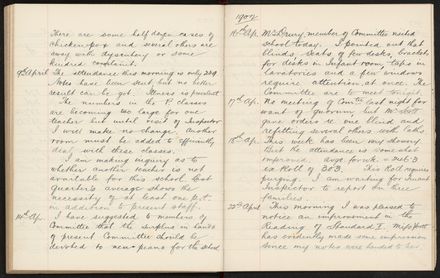 There are some half dozen cases of
Chicken-pox and several others are
away with dysentery or some
kindred complaint.
9th April The attendance this morning is only 229.
Notes have been sent but no better
result can be got. Illness is prevalent
The numbers in the P. classes
are becoming too large for one
teacher but until visit of Inspector
I will make no change. Another
room must be added to efficiently
deal with these classes.
I am making inquiry as to
whether another teacher is not
available for this school. Last
Quarter's average shows the
necessity of at least one p.t.
in addition to present staff.
14th Ap. I have suggested to members of
Committee that the surplus in hands
of present Committee should be
devoted to new piano for the school
1902
16th Ap. Mr Drury, member of Committee visited
school today. I pointed out that
blinds, seats of few desks, brackets
for desks in Infant room, taps in
lavatories and a few windows
require attention at once. The
Committee are to meet tonight.
17th Ap. No meeting of Comtee last night for
want of quorum, but Mr Scott
gave orders to one blind and
refitting several others with laths.
18th Ap. This week has been very showery
But the attendance is somewhat
improved. avge for wk = 261.3
ex Roll of 303. This Roll requires
purging. I am waiting for truant
Inspector to report on three
families.
22nd April This morning I was pleased to
notice an improvement in the
Reading of Standard I. Miss
has evidently made some impression
since my notes were handed to her.